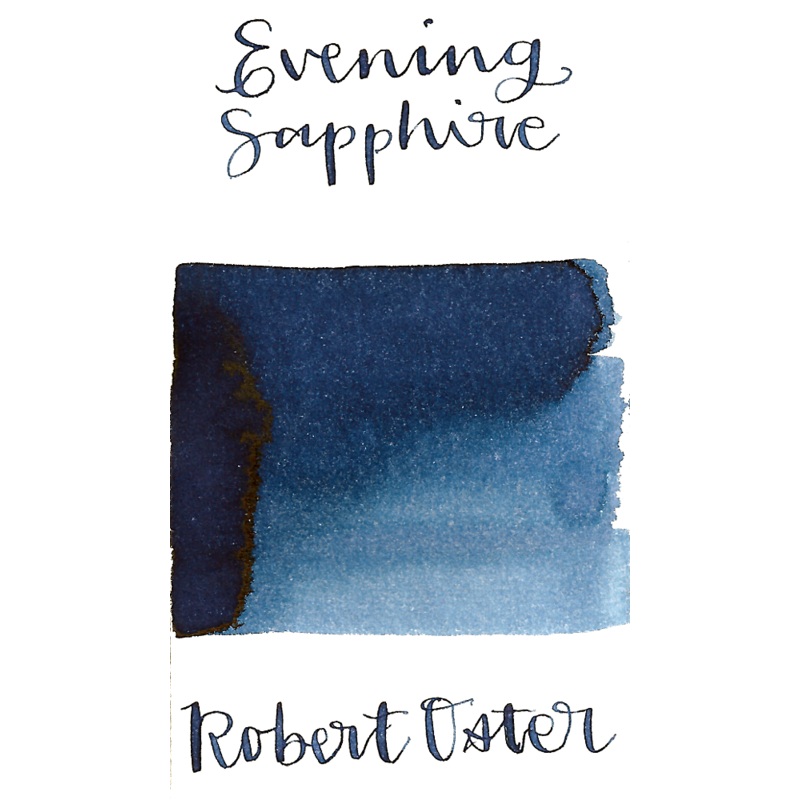 Evening
Sapphire
Robert Oster